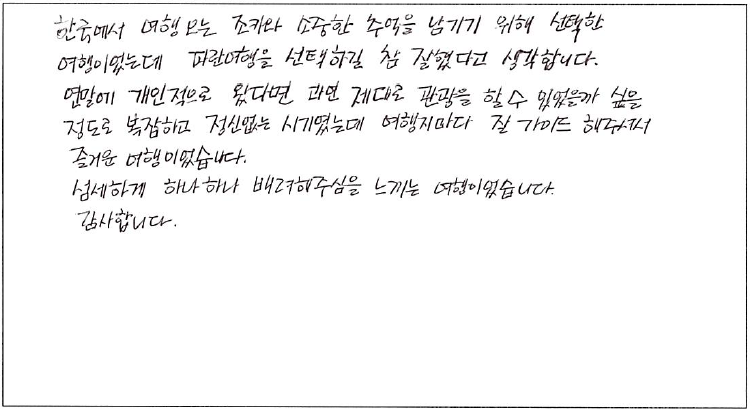 한국에서 여행 오는 조카와 소중한 추억을 남기기 위해 선택한
여행이었는데 파란여행을 선택하길 참 잘했다고 생각합니다.
연말에 개인적으로 왔다면 과연 제대로 관광을 할 수 있었을까 싶을
정도로 복잡하고 정신없는 시기였는데 여행지마다 잘 가이드 해주셔서
즐거운 여행이었습니다.
섬세하게 하나하나 배려해주심을 느끼는 여행이었습니다.
감사합니다.